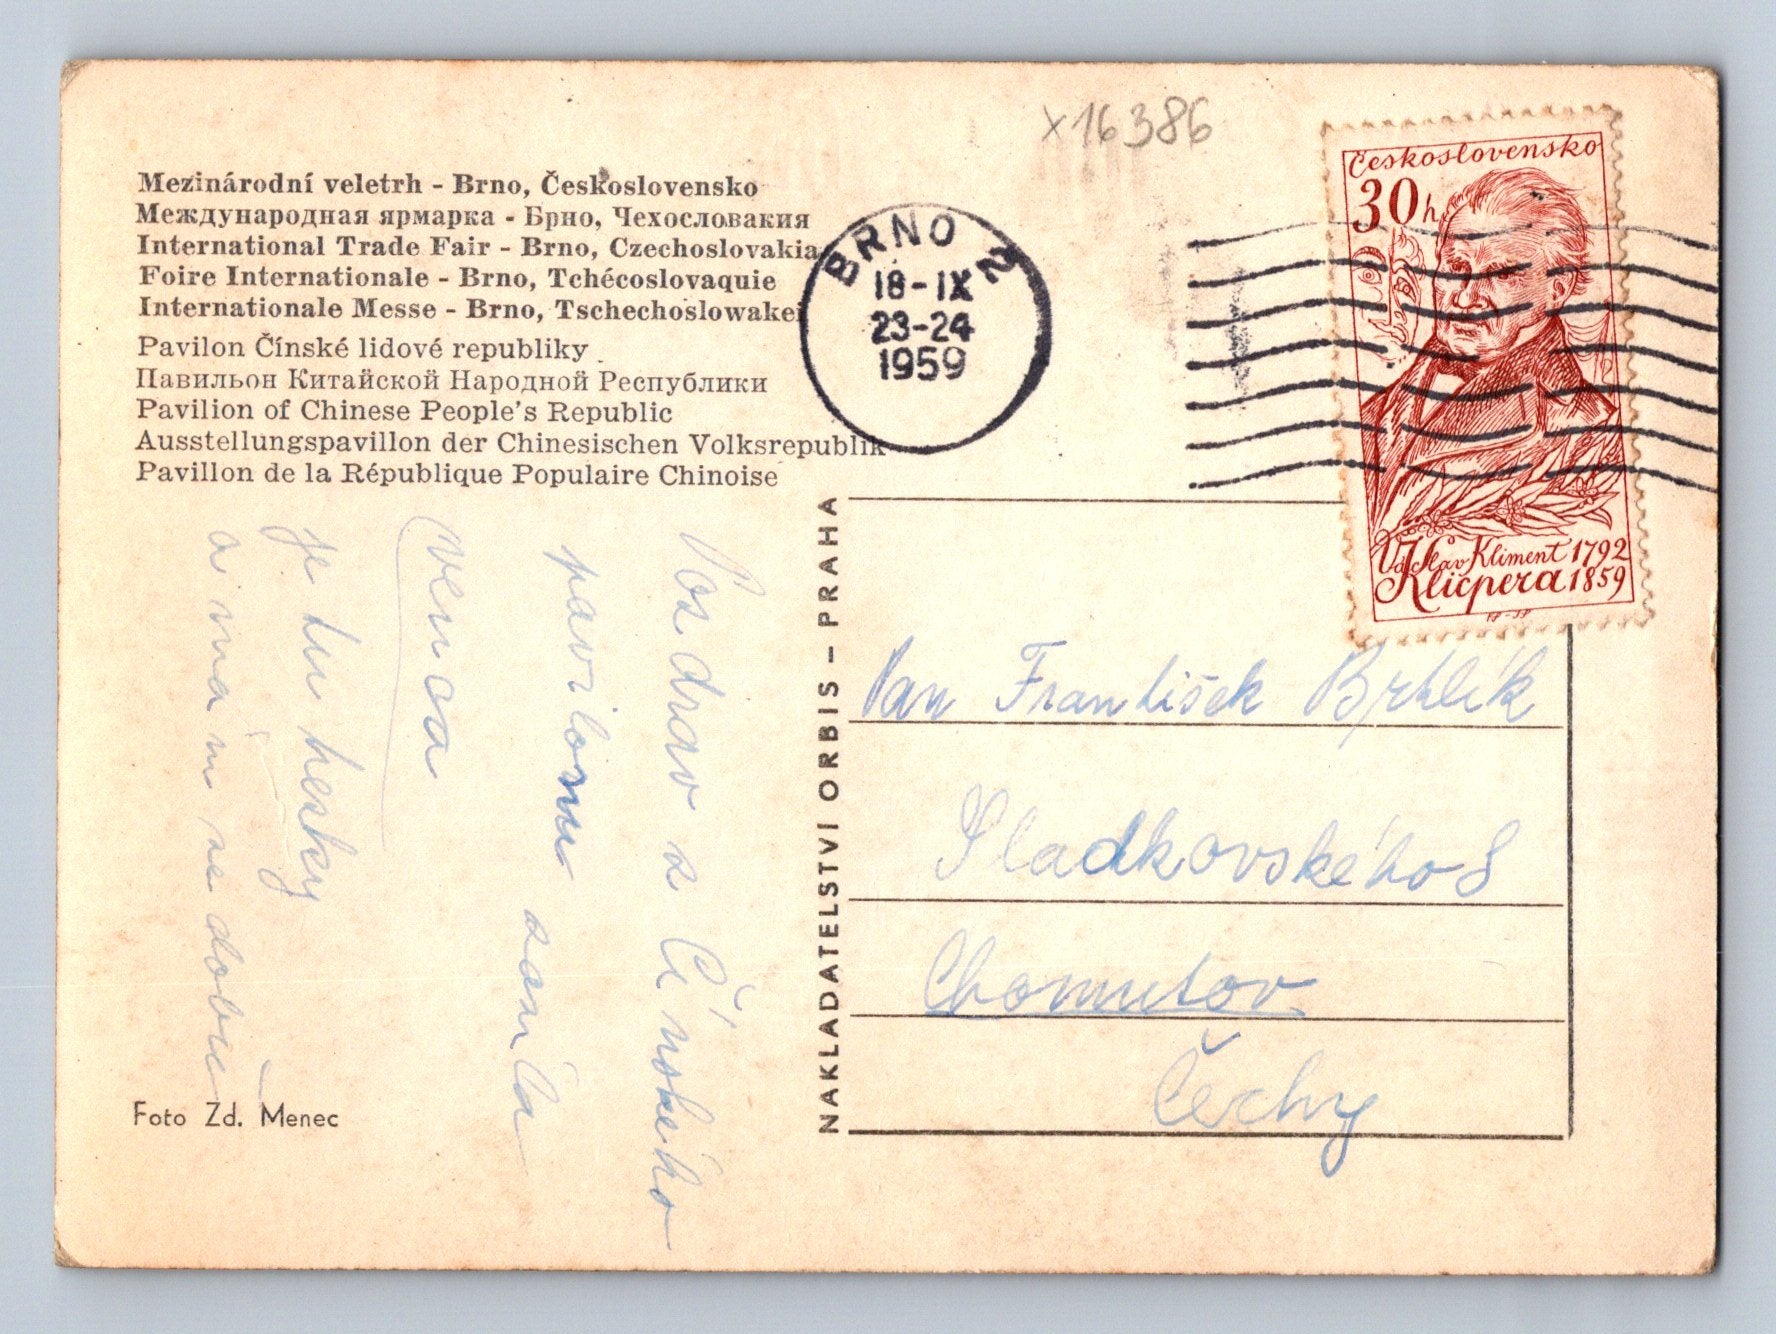 x16386
Mezinárodní veletrh - Brno, Československo
Международная ярмарка - Брно, Чехословакия
International Trade Fair - Brno, Czechoslovakia
Foire Internationale - Brno, Tchécoslovaquie
Internationale Messe - Brno, Tschechoslowakei
Pavilon Čínské lidové republiky
Павильон Китайской Народной Республики
Pavilion of Chinese People's Republic
Ausstellungspavillon der Chinesischen Volksrepublik
Pavillon de la République Populaire Chinoise
BRNO 2
18-IX
23-24
1959
Československo
30h
Václav Kliment 1792
Klicpera 1859
Pozdrav z Čínského
pavilonu
je tu hesky
a mám se dobře
NAKLADATELSTVÍ ORBIS - PRAHA
Pan František Brhlík
Sladkovského 8
Chomutov
Čechy
Foto Zd. Menec